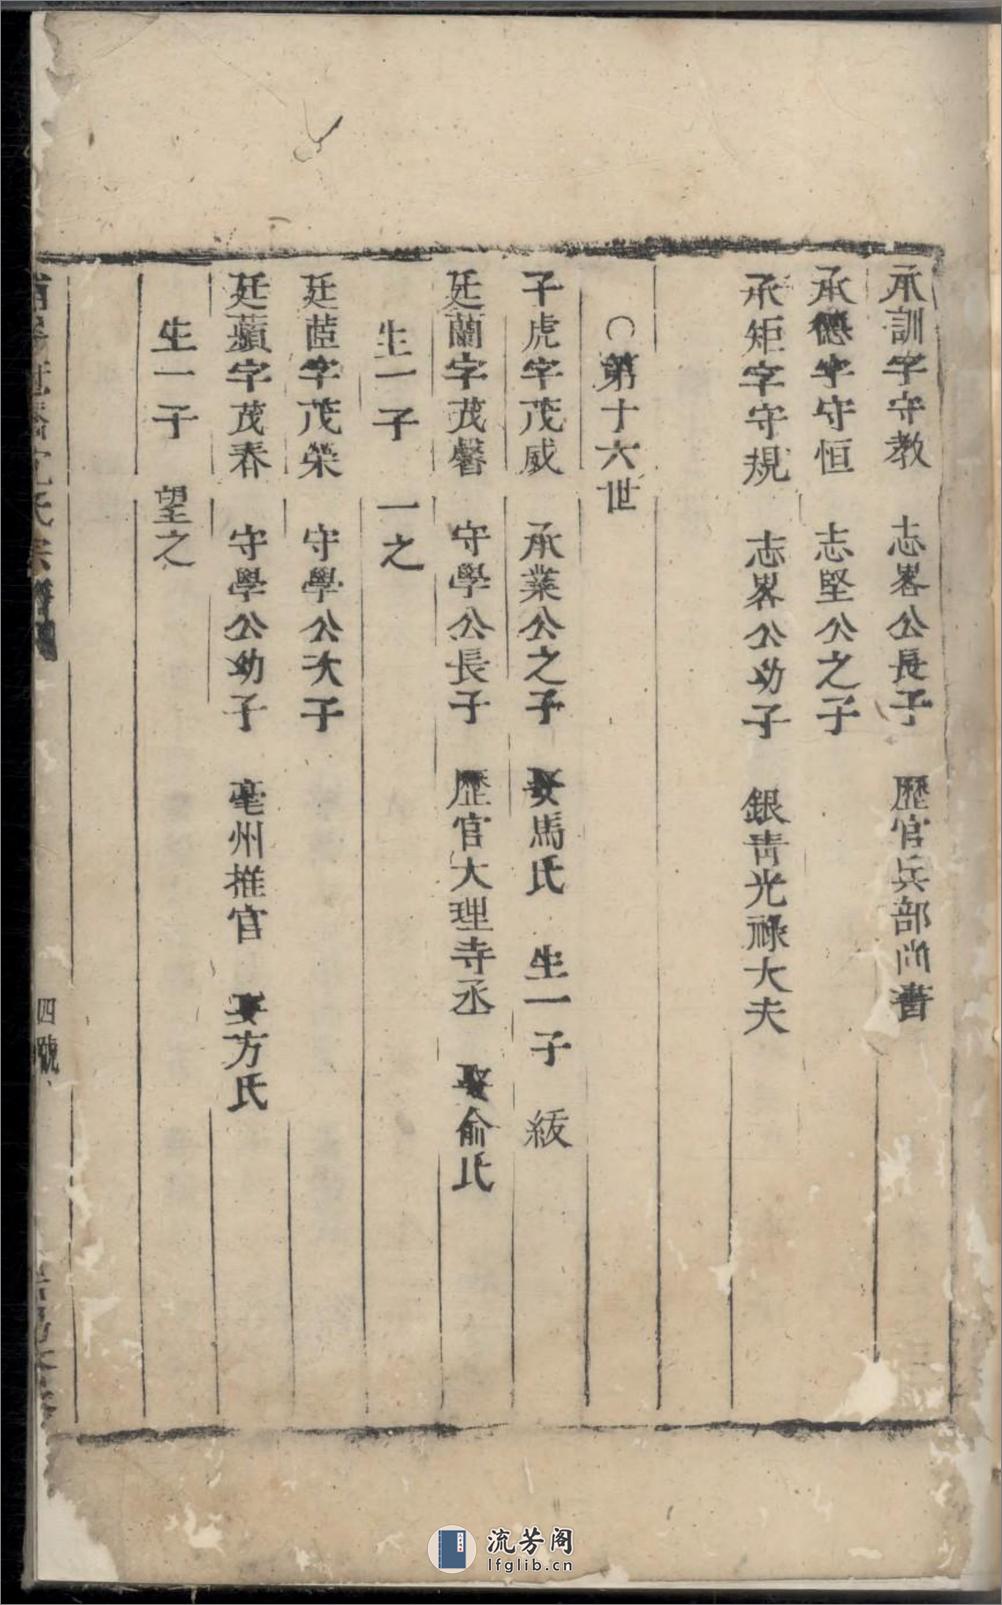 承訓字守教　志畧公長子　歷官兵部尚書
承德字守恒　志堅公之子
承矩字守規　志畧公幼子　銀青光祿大夫
○第十六世
子虎字茂威　承業公之子　娶馬氏　生一子　紱
廷蘭字茂馨　守學公長子　歷官大理寺丞　娶俞氏
生一子　一之
廷茝字茂榮　守學公次子
廷蘋字茂春　守學公幼子　亳州推官　娶方氏
生一子　望之
氏宗譜
四號
流芳阁
lfglib.cn